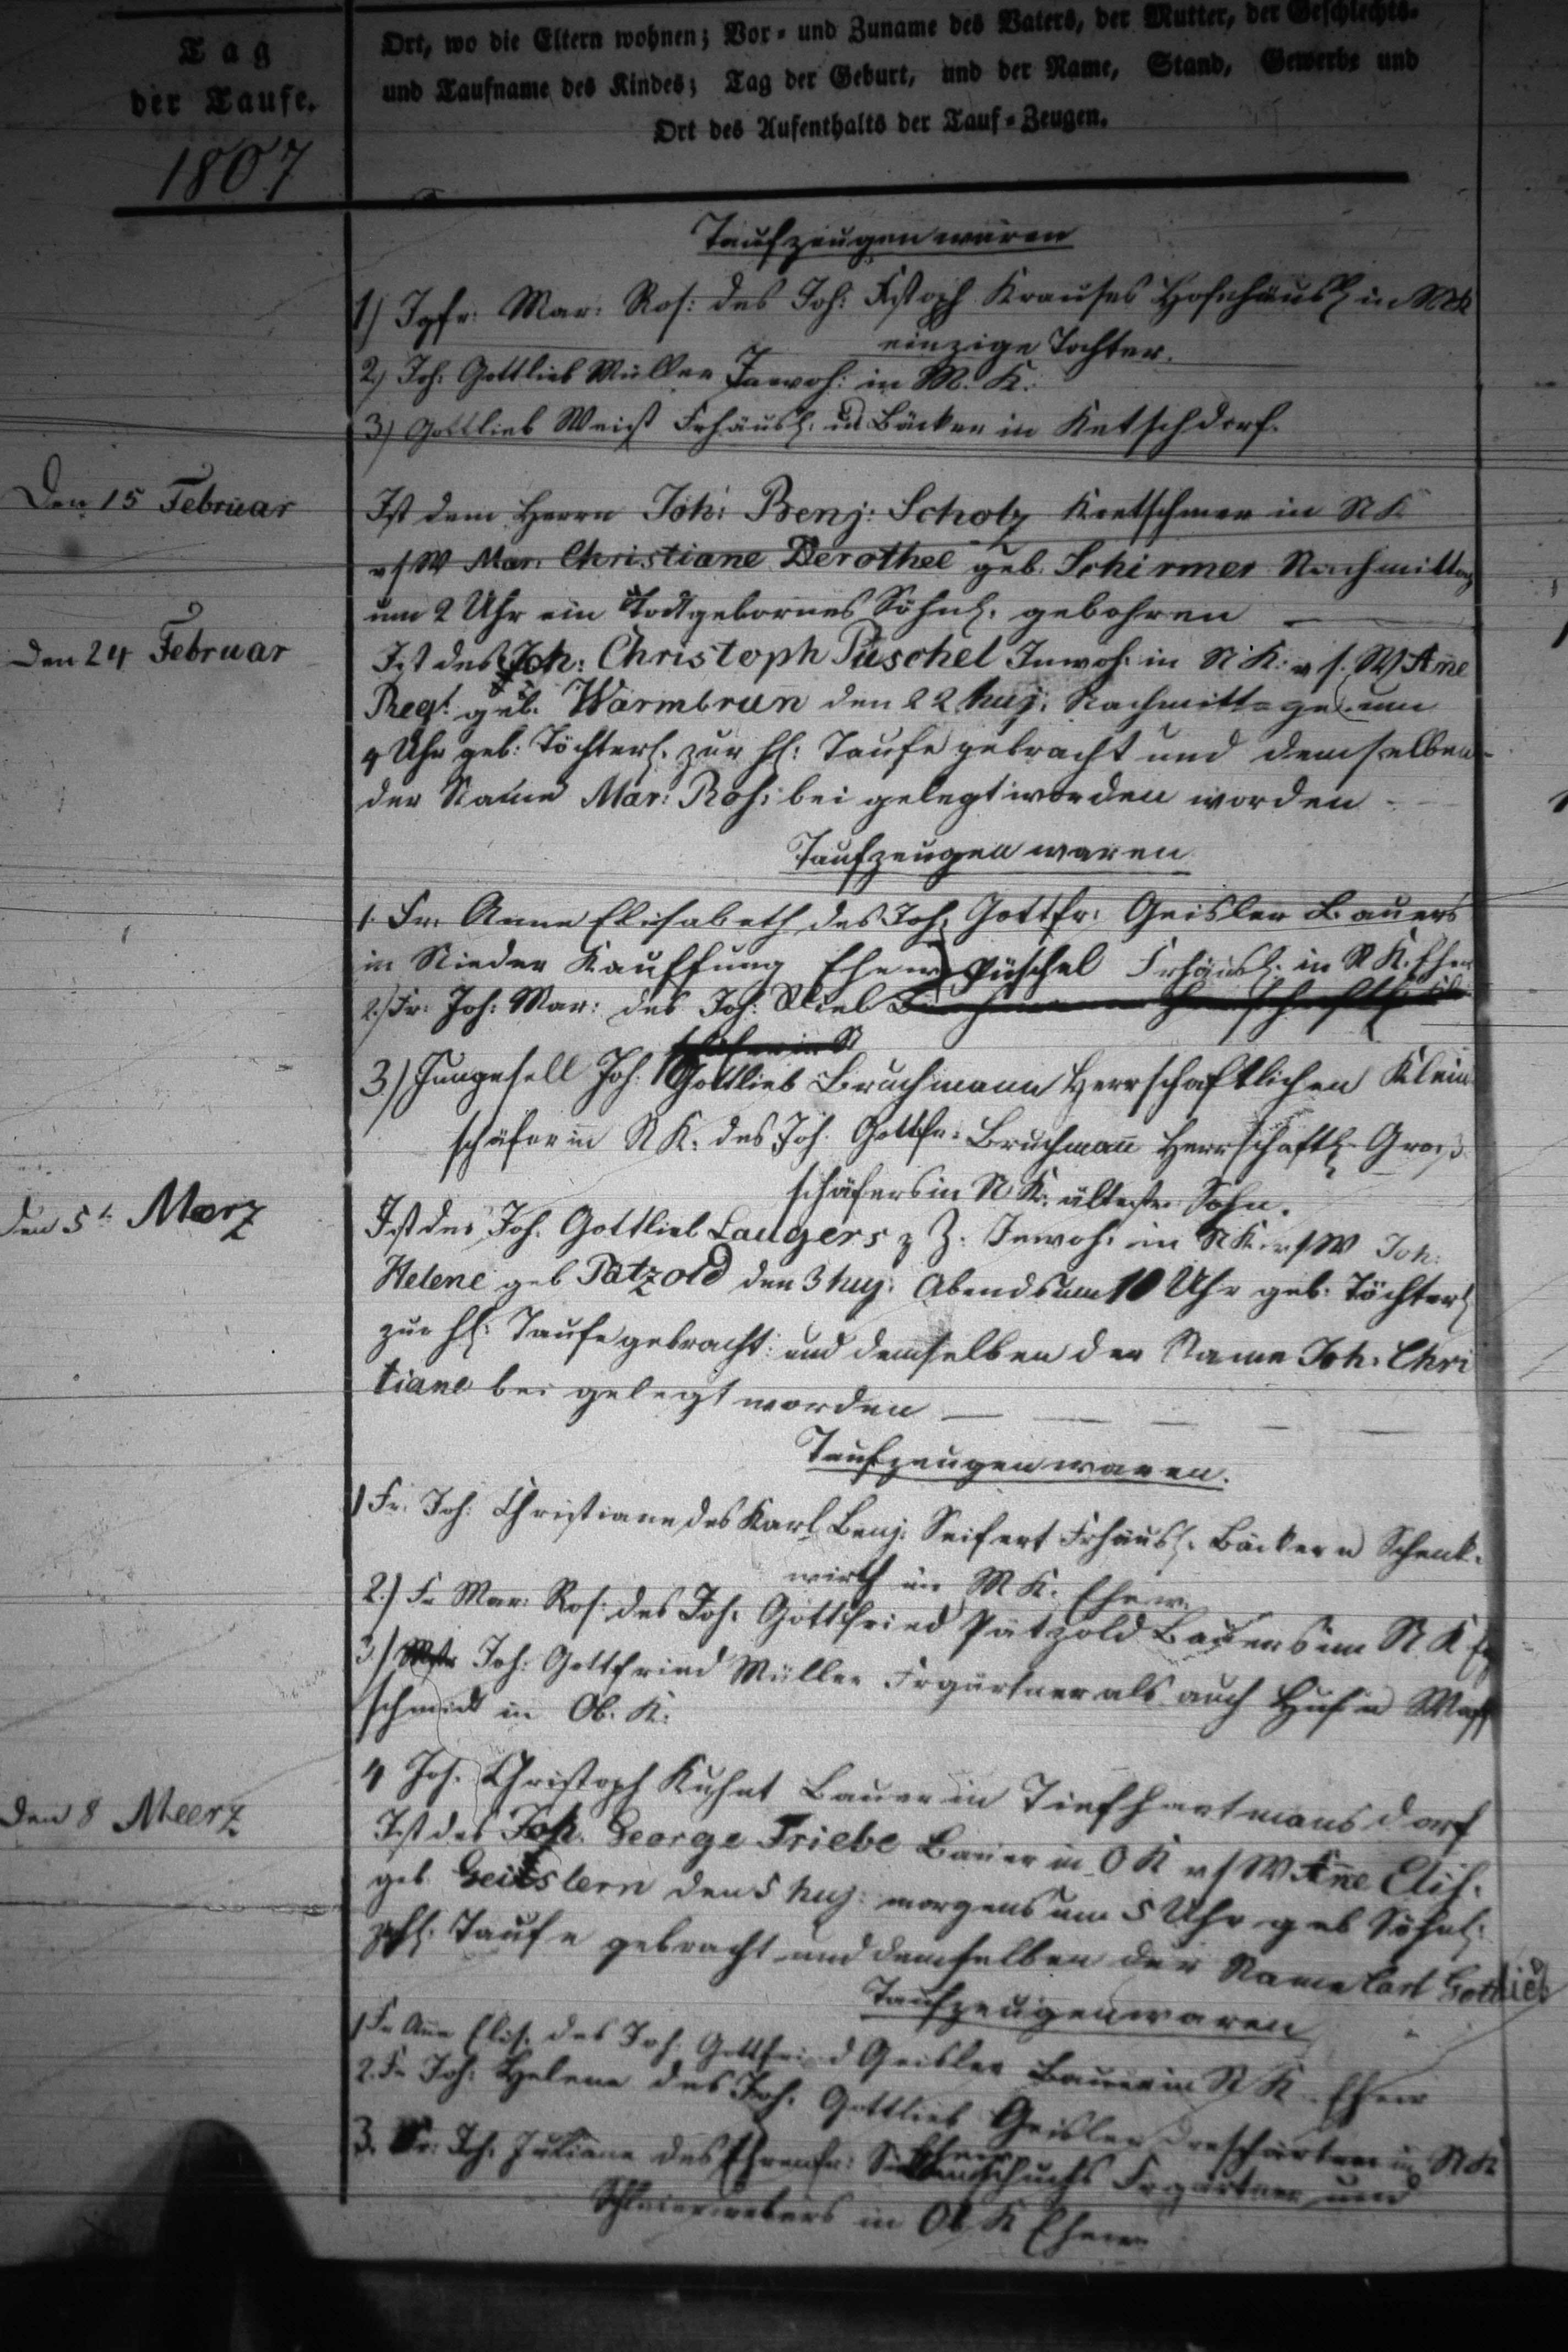 Tag
der Taufe.
1807
Ort, wo die Eltern wohnen; Vor- und Zuname des Vaters, der Mutter, der Geschlechts-
und Taufname des Kindes; Tag der Geburt, und der Name, Stand, Gewerbe und
Ort des Aufenthalts der Tauf-Zeugen.
Taufzeugen waren
1) Jgfr: Mar: Ros: des Joh: Krauses Hofehäusl in MK
einzige Tochter.
2.) Joh: Gottlieb Müller Inwoh: in M. K:
3) Gottlieb Weist Frhäusl. u Bäcker in Ketschdorf.
Den 15 Februar
Ist dem Herrn Joh: Benj: Scholz Kretschmer in NK
v s W Mar: Christiane Dorothee geb. Schirmer Nachmittag
um 2 Uhr ein Todtgebornes Söhnl. gebohren —
Den 24 Februar
Ist des Joh: Christoph Püschel Inwoh: in N. K: v s. W Añe
Reg: geb. Warmbrun den 22 huj: Nachmittage um
4 Uhr geb: Töchterl. zur hl: Taufe gebracht und demselben
der Name Mar: Ros: bei gelegt worden worden -
Taufzeugen waren
1 Fr: Anna Elisabeth des Joh: Gottfr: Geisler Bauers
in Nieder Kauffung Ehew Püschel Frhäusl. in N K. Ehew
2.) Fr: Joh: Mar: des Joh:
3) Jungesell Joh: Gottlieb Bruchmann Herrschaftlichen Klein
schäfer in N K. des Joh: Gottfr: Bruchmañ Herrschaftl. Groß
schäfers in N K: ältester Sohn.
Den 5t Maerz
Ist des Joh. Gottlieb Laugers z Z. Inwoh: in N K. v s W Joh:
Helene geb Pätzold den 3 huj: Abends um 10 Uhr geb: Töchterl
zur hl: Taufe gebracht: und demselben der Name Joh: Chri
tiane bei gelegt worden —
Taufzeugen waren.
1) Fr: Joh: Christiane des Karl Benj: Seifert Frhäusl. Bäcker u Schenk-
wirth in M K. Ehew.
2.) Fr Mar: Ros: des Joh: Gottfried Pätzold Bauers in N K
3.) Joh: Gottfried Müller Frgärtner als auch Huf u Waff
schmidt in Ob. K.
4 Joh. Christoph Kuhnt Bauer in Tiefhartmansdorf
Den 8 Meerz
Ist des Joh. George Friebe Bauer in O K v s W Añe Elis.
geb Geislern den 5 huj: morgens um 5 Uhr geb Söhnl:
z hl. Taufe gebracht und demselben der Name Carl Gottlieb
Taufzeugen waren
1 Fr Añe Elis. des Joh. Gottfried Geisler Bauer in N K Ehew
2. Fr Joh: Helene des Joh. Gottlieb Geisler Dreschgärtner in N K
Ehew
3. Fr: Joh: Juliane des Ehrenfr: Frgärtner und
Schleierwebers in Ob K Ehew